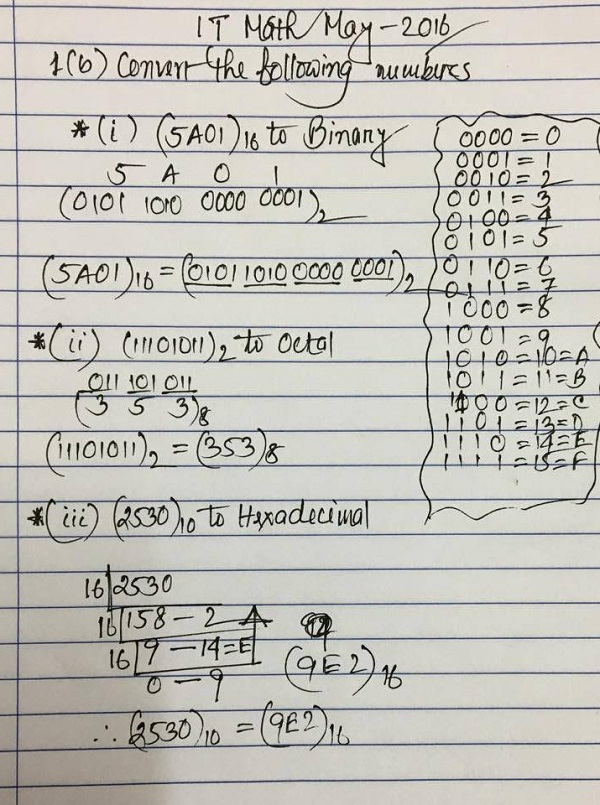 IT Math May - 2016
1(b) Convert the following numbers
*(i) (5A01)16 to Binary
5 A 0 1
(0101 1010 0000 0001)2
(5A01)16 = (0101 1010 0000 0001)2
*(ii) (11101011)2 to Octal
011 101 011
(3 5 3)8
(11101011)2 = (353)8
*(iii) (2530)10 to Hexadecimal
16 2530
16 158 - 2
16 9 - 14=E
0 - 9
(9E2)16
∴ (2530)10 = (9E2)16
0000 = 0
0001 = 1
0010 = 2
0011 = 3
0100 = 4
0101 = 5
0110 = 6
0111 = 7
1000 = 8
1001 = 9
1010 = 10 = A
1011 = 11 = B
1100 = 12 = C
1101 = 13 = D
1110 = 14 = E
1111 = 15 = F